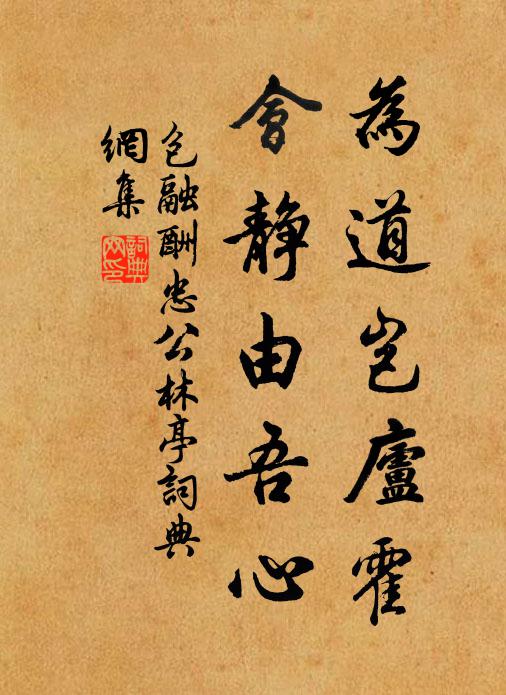 為道豈廬霍
會靜由吾心
包融酬忠公林亭詞典
網集
詞典網印